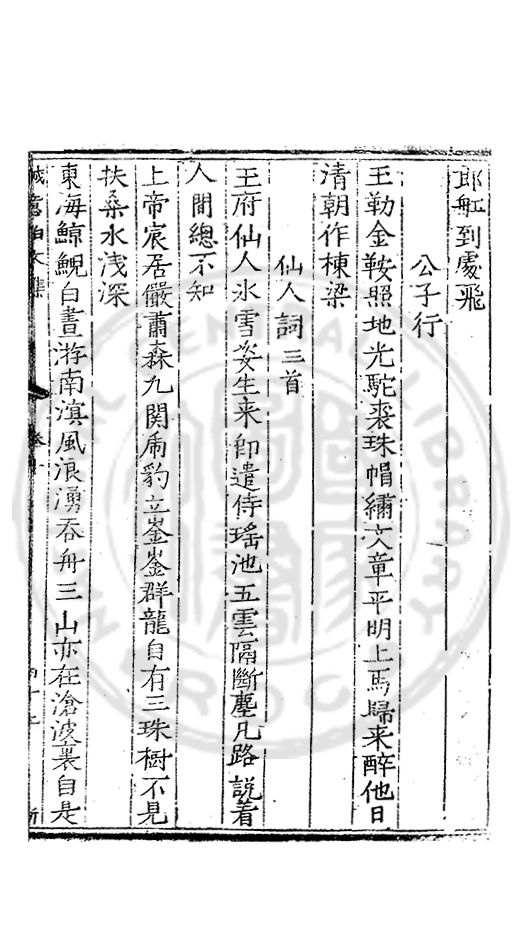 郎舡到處飛
公子行
玉勒金鞍照地光駝裘珠帽繡文章平明上馬歸来醉他日
清朝作棟梁
仙人詞三首
王府仙人氷雪姿生来卽遣侍瑶池五雲隔斷塵凡路說着
人間總不知
上帝宸居儼肅森九関虎豹立崟崟群龍自有三珠樹不見
扶桑水浅深
東海鯨鯢白晝游南滇風浪湧吞舟三山亦在滄波裏自是
誠意伯文集